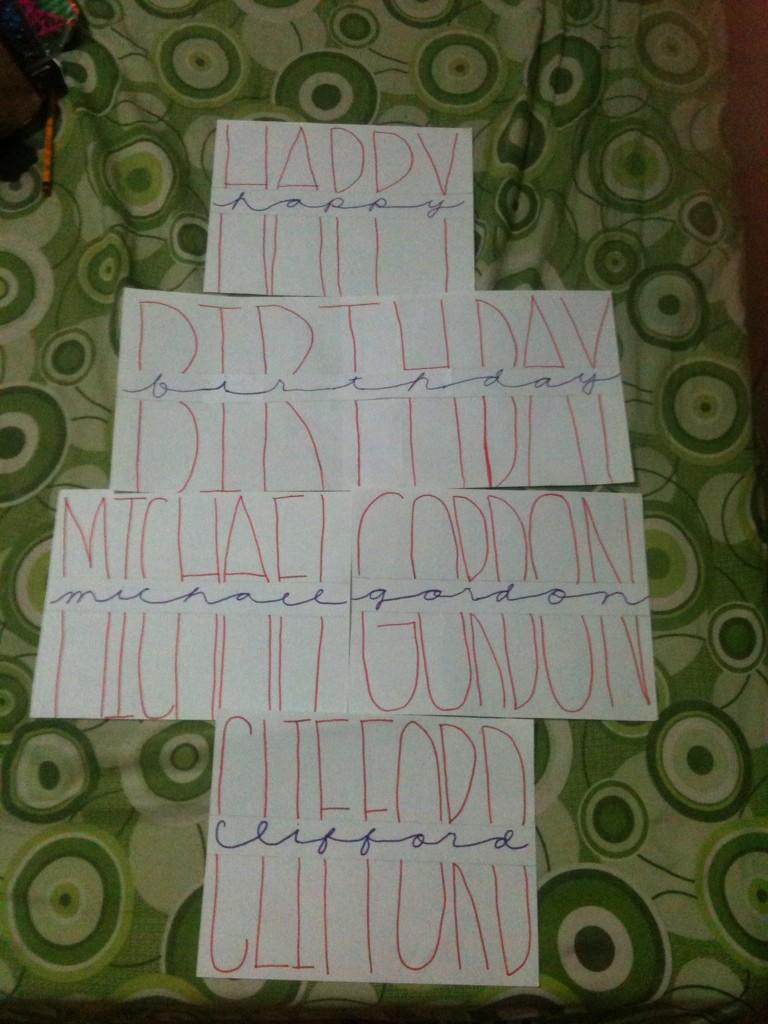 HAPPY
happy
BIRTHDAY
birthday
MICHAEL GORDON
michael gordon
CLIFFORD
Clifford